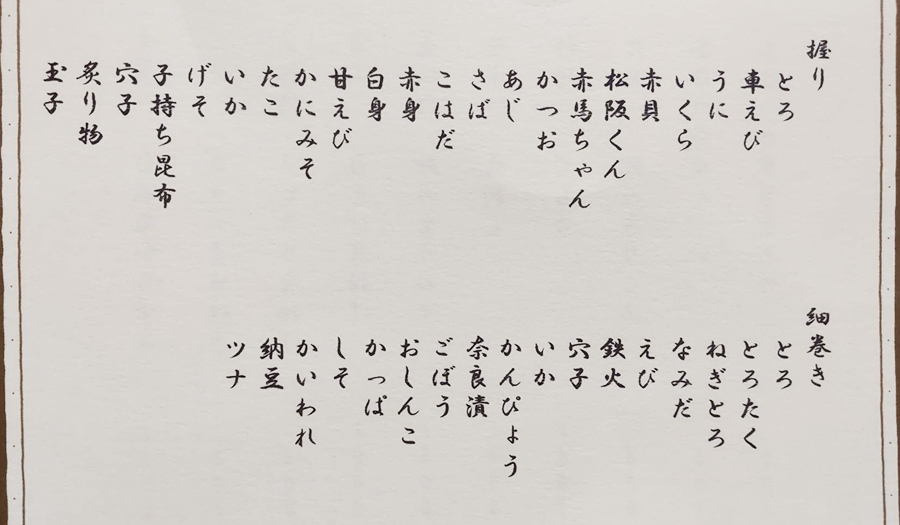 握り
とろ
車えび
うに
いくら
赤貝
松阪くん
赤馬ちゃん
かつお
あじ
さば
こはだ
赤身
白身
甘えび
かにみそ
たこ
いか
げそ
子持ち昆布
穴子
炙り物
玉子
細巻き
とろ
とろたく
ねぎとろ
なみだ
えび
鉄火
穴子
いか
かんぴょう
奈良漬
ごぼう
おしんこ
かっぱ
しそ
かいわれ
納豆
ツナ